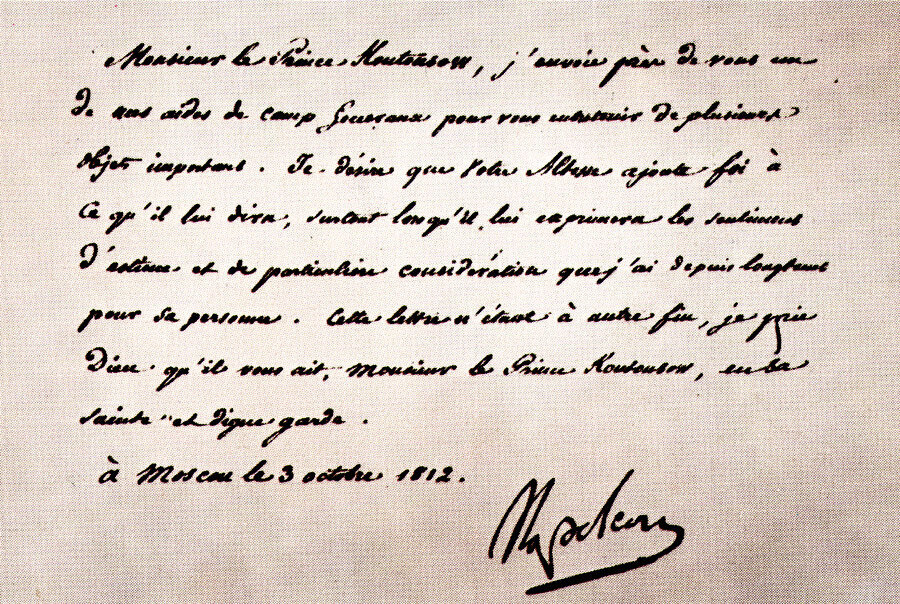 Monsieur le Prince Koutousow, j'envoie près de vous un
de mes aides de camp Généraux pour vous entretenir de plusieurs
objets important. Je désire que Votre Altesse ajoute foi à
ce qu'il lui dira, surtout lorsqu'il lui exprimera les sentimens
d'estime et de particulière considération que j'ai depuis longtems
pour sa personne. Cette lettre n'étant à autre fin, je prie
Dieu qu'il vous ait, Monsieur le Prince Koutousow, en sa
sainte et digne garde.
à Moscou le 3 octobre 1812.
Napoleon